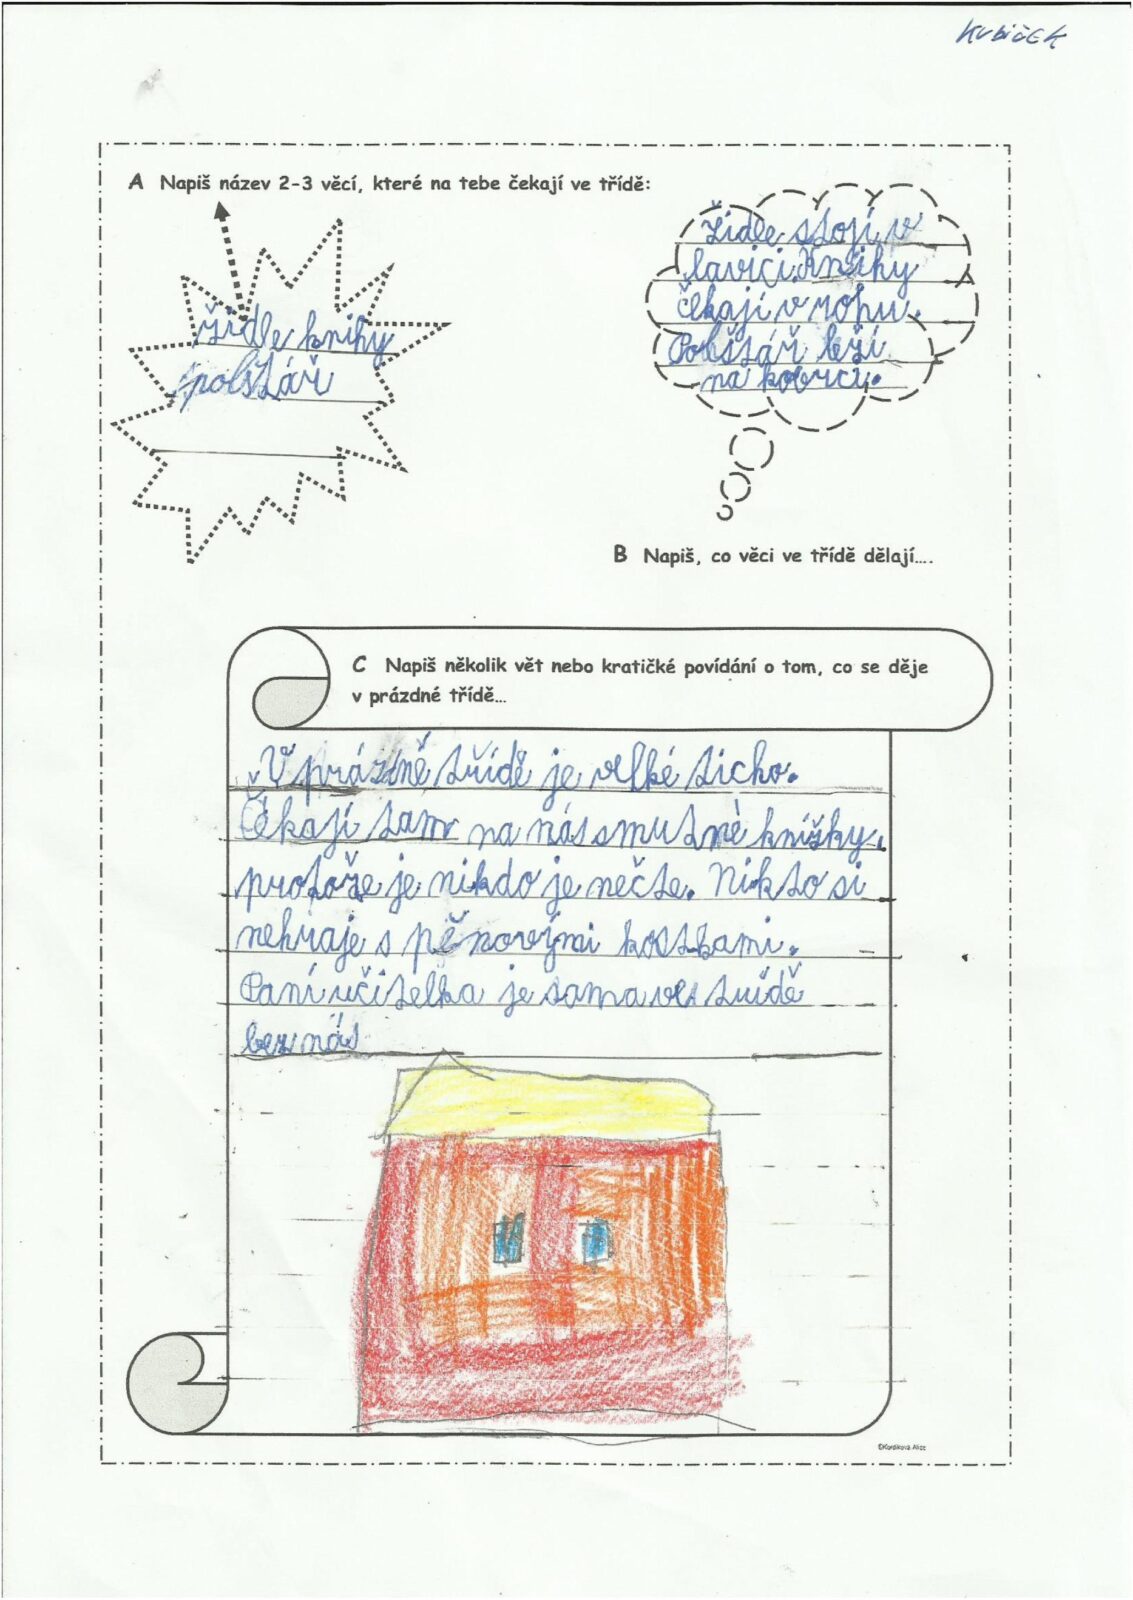 Kubíček
A Napiš název 2-3 věcí, které na tebe čekají ve třídě:
židle knihy
polštář
Židle stojí v
lavici. Knihy
čekají v rohu.
Polštář leží
na koberci.
B Napiš, co věci ve třídě dělají....
C Napiš několik vět nebo kratičké povídání o tom, co se děje
v prázdné třídě...
V prázné třídě je velké ticho.
Čekají tam na nás smutné knížky,
protože je nikdo je nečte. Nikto si
nehraje s pěnovými kostkami.
Paní učitelka je sama ve třídě
bez nás
©Kordíková Alice